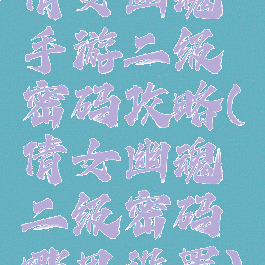 倩女幽魂
手游二级
密码攻略(
倩女幽魂
二级密码